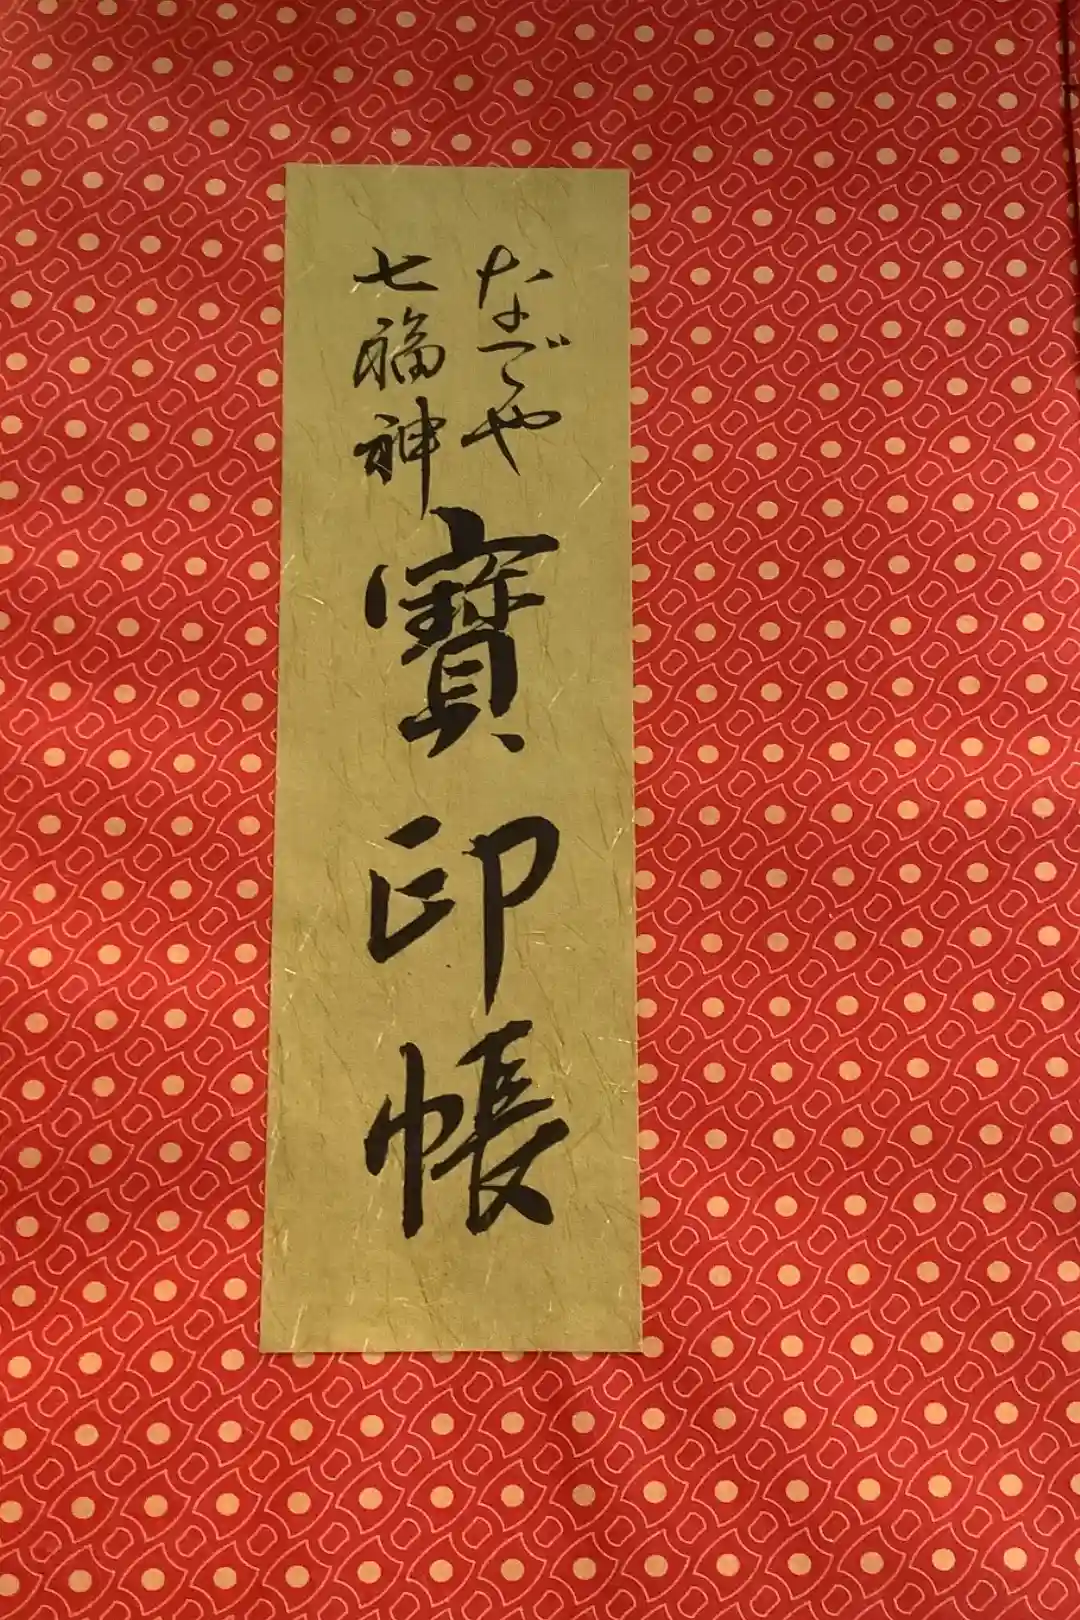 なごや
七福神
寳印帳